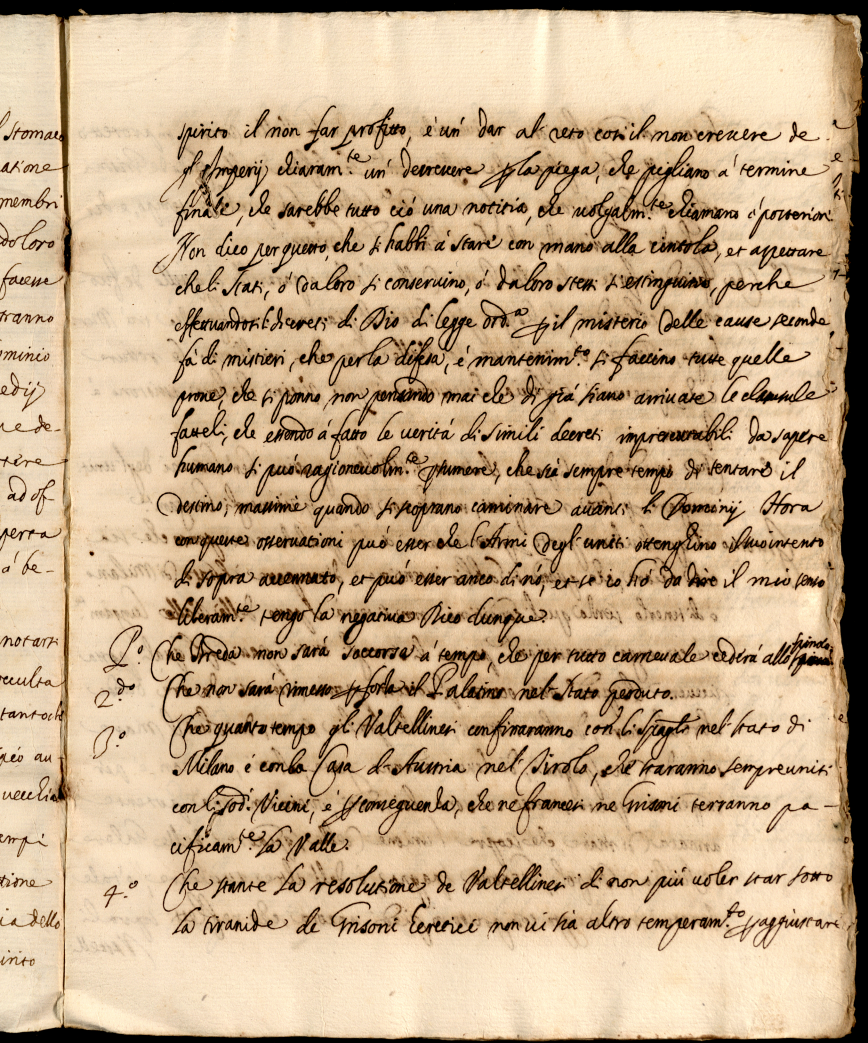 stomaco
atione
membri
do loro
facesse
tranno
ominio
edij
ne de-
ad of
perta
à be-
notarsi
occulta
tanto ch
au
vecchia
empi
tione
ia dello
irito
spirito il non far profitto, è un' dar al' reto così il non crescere de
gl' Imperij chiaram.te un' decrescere p la piega, che pigliano à termine
finale, che sarebbe tutto ciò una notitia, che volgalm.te chiamano à posteriori
Non dico per questo, che si habbi à stare con mano alla cintola, et aspettare
che li Stati, ò da loro si conservino, ò da loro stessi si estinguino, perche
effettuandosi li decreti di Dio di legge ord.a p il misterio delle cause seconde
fà di mistieri, che per la difesa, è mantenim.to si faccino tutte quelle
prove, che si ponno non pensando mai che di già siano arrivate le clausule
fatteli, che essendo à fatto le verità di simili decreti imperscrutabili da sapere
humano si può ragionevolm.te psumere, che sia sempre tempo di tentare il
destino, massime quando si scoprano caminare avanti li Dominij Hora
con queste osservationi può esser che l'Armi degl' uniti ottenghino il suo intento
di sopra accennato, et può esser anco di nò, et se io hò da dire il mio senso
liberam.te tengo la negativa Dico dunque.
P.o Che Breda non sarà soccorsa à tempo, che per tutto carnevale cederà allo Spinola
2.do Che non sarà rimesso p forza il Palatino nel' stato perduto.
3.o Che quanto tempo gli Valtellinesi confinaranno con li Spag.li nel' stato di
Milano è con la Casa d'Austria nel' Tirolo, che staranno sempre uniti
con li sod.i Vicini, è p conseguenza, che ne francesi ne Grisoni terranno pa-
cificam.te la Valle.
4.o Che stante la resolutione de Valtellinesi di non più voler star sotto
la tiranide de Grisoni heretici non vi sia altro temperam.to p aggiustare